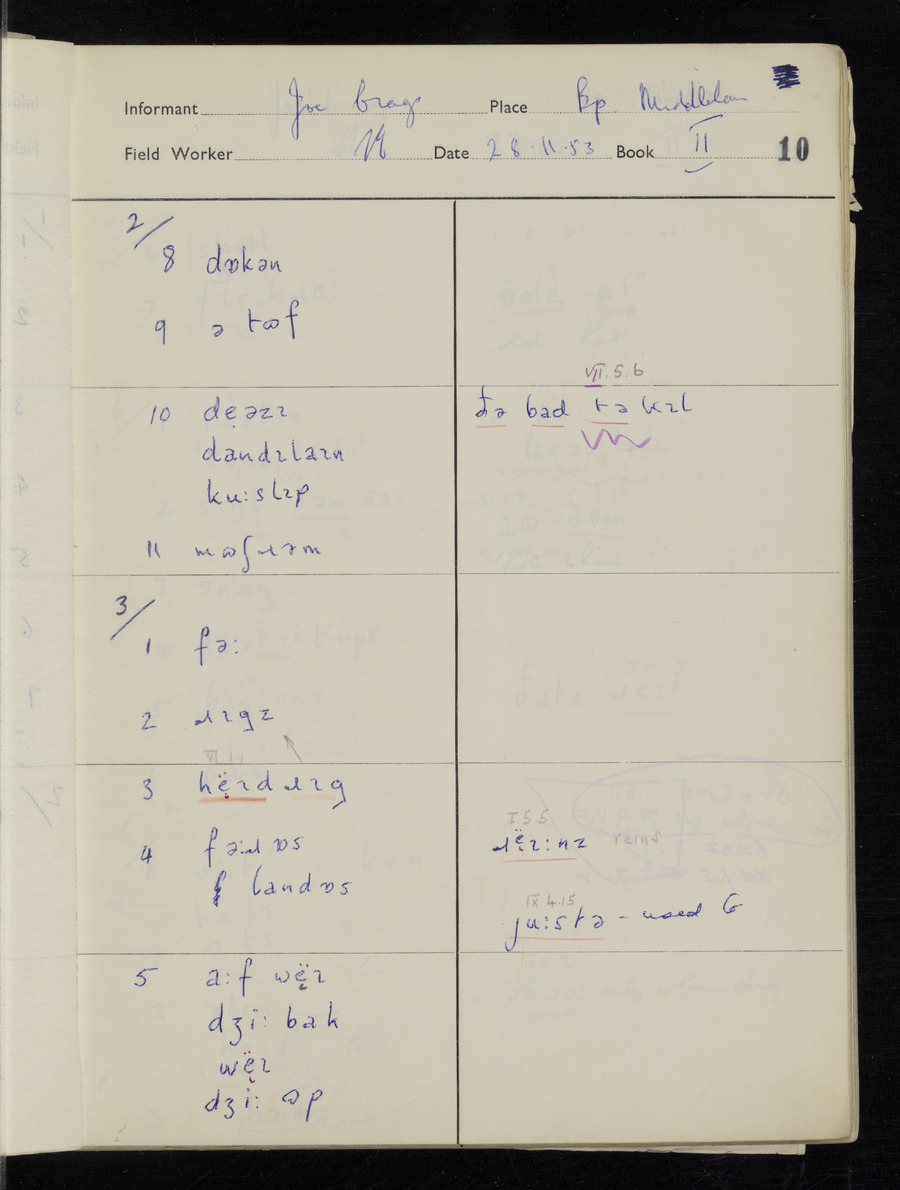 Informant Joe Brags Place Bp. Middleham
Field Worker Date 28.11.53 Book II 10
2/
8 dɒkən
9 ə tʊf
10 dẹəzɪ
dandɪlaɪn
ku:slɪp
11 mʊʃɹəm
3/
1 fə:
2 ɹɪgz
VI.1.1
3 hë̞ɪdɹɪg
4 fə:ɹ ɒs
landɒs
5 a:f wë̞ɪ
dʒï: bak
wë̞ɪ
dʒï: ʊp
VII.5.6
ðə bad tə kɪl
I.5.5
ɹë̞ɪ:nz reins
IX 4.15
ju:stə - used G